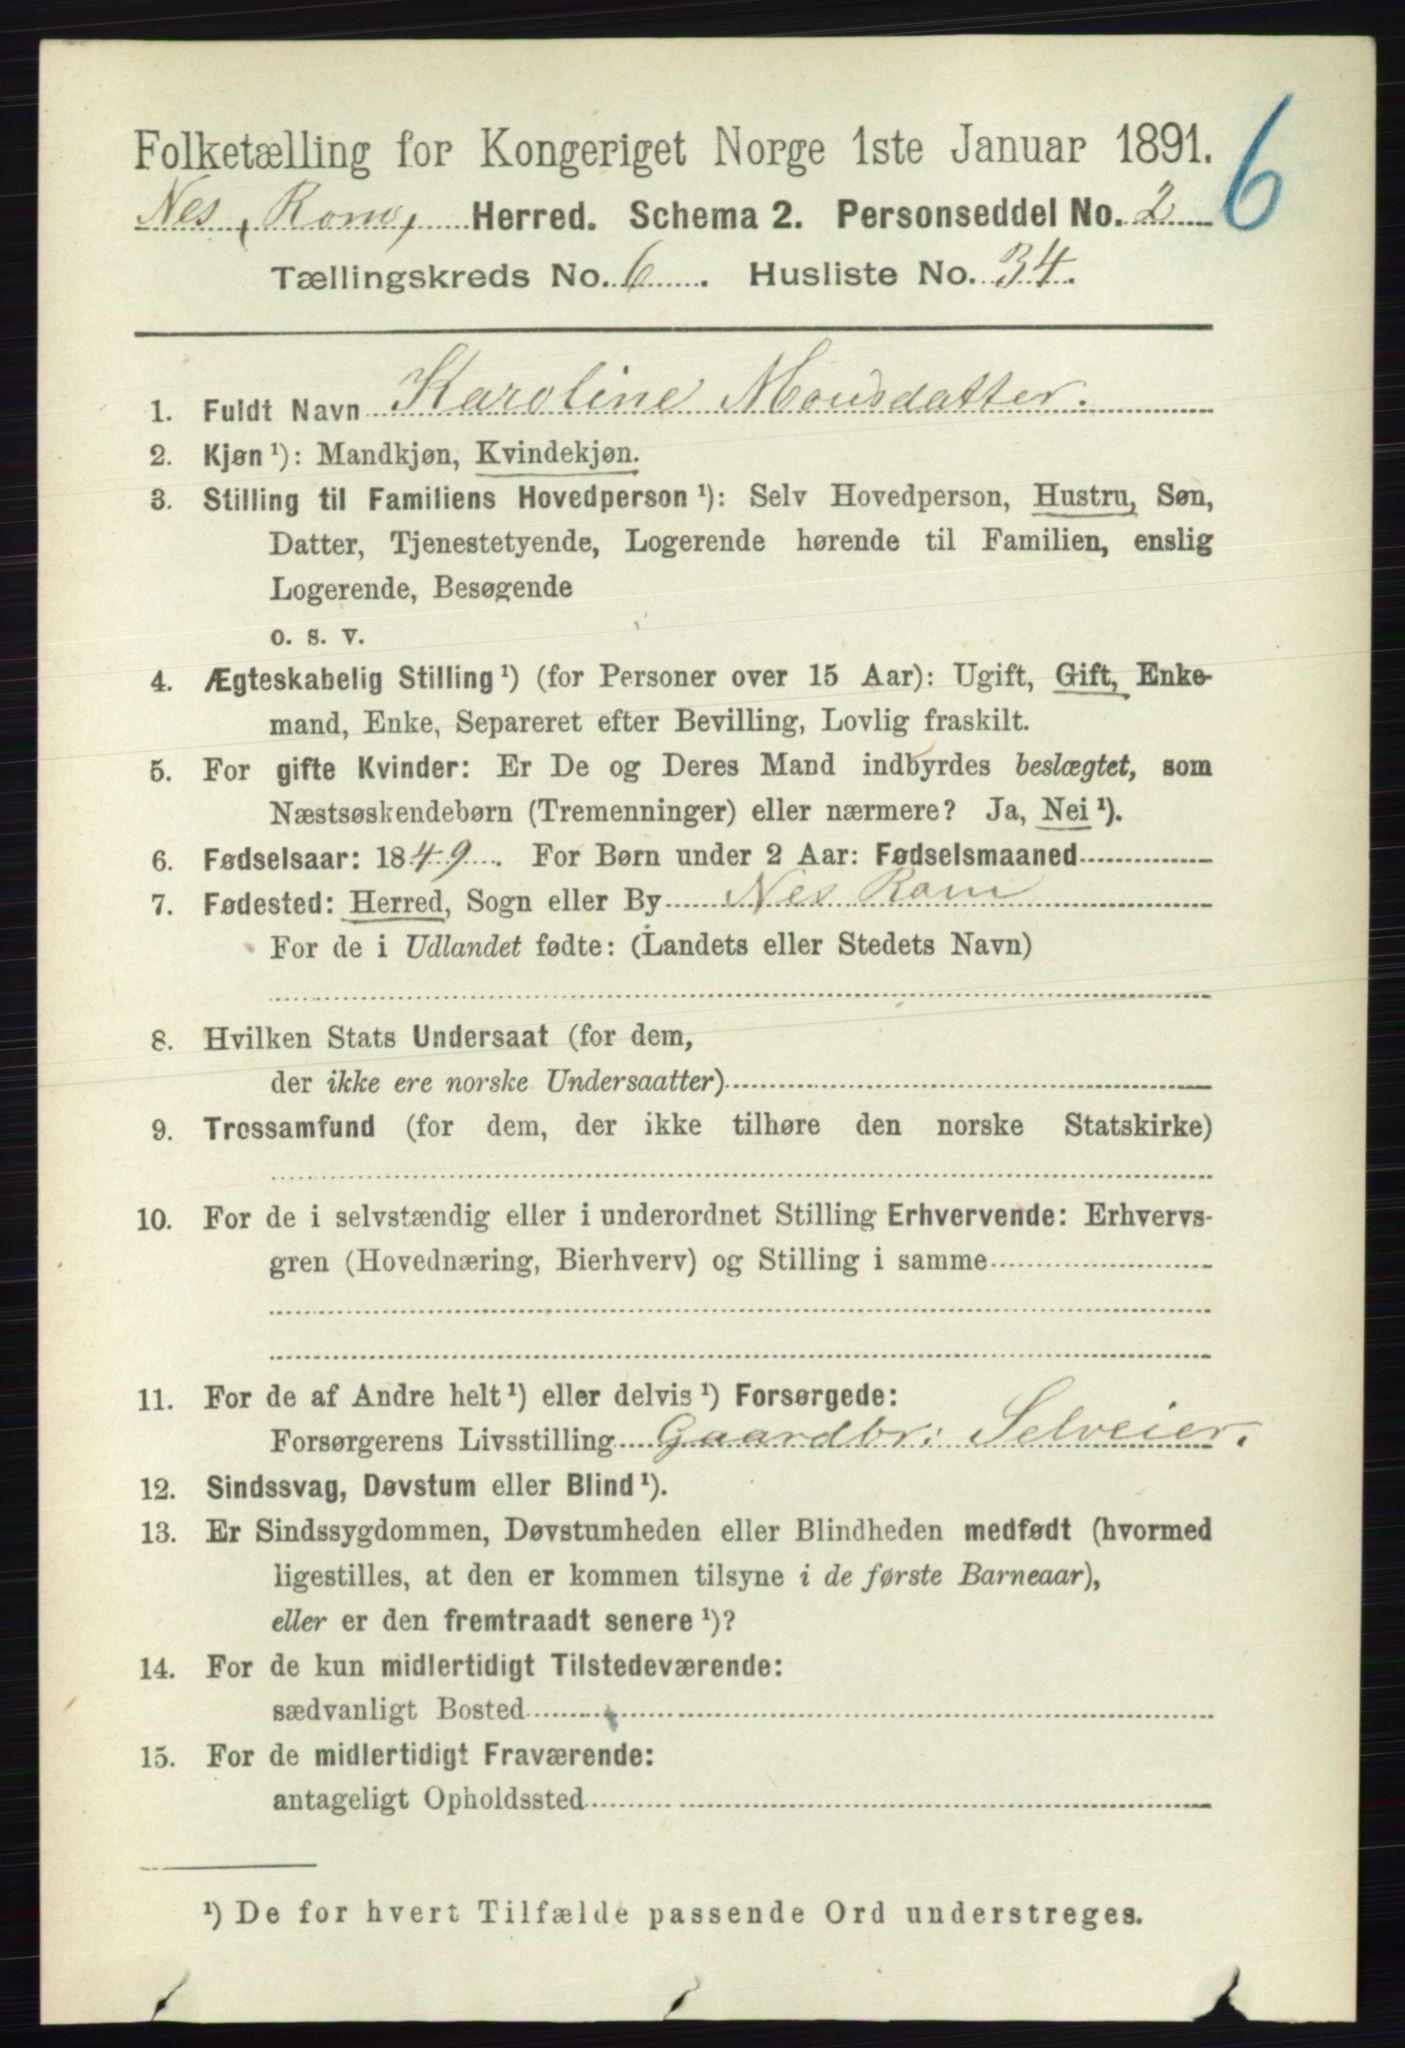 6
Folketælling for Kongeriget Norge 1ste Januar 1891.
Nes, Rom, Herred. Schema 2. Personseddel No. 2
Tællingskreds No. 6. Husliste No. 34.
1. Fuldt Navn Karoline Monsdatter.
2. Kjøn¹): Mandkjøn, Kvindekjøn.
3. Stilling til Familiens Hovedperson¹): Selv Hovedperson, Hustru, Søn,
Datter, Tjenestetyende, Logerende hørende til Familien, enslig
Logerende, Besøgende
o. s. v.
4. Ægteskabelig Stilling¹) (for Personer over 15 Aar): Ugift, Gift, Enke-
mand, Enke, Separeret efter Bevilling, Lovlig fraskilt.
5. For gifte Kvinder: Er De og Deres Mand indbyrdes beslægtet, som
Næstsøskendebørn (Tremenninger) eller nærmere? Ja, Nei¹).
6. Fødselsaar: 1849. For Børn under 2 Aar: Fødselsmaaned
7. Fødested: Herred, Sogn eller By Nes Rom
For de i Udlandet fødte: (Landets eller Stedets Navn)
8. Hvilken Stats Undersaat (for dem,
der ikke ere norske Undersaatter)
9. Trossamfund (for dem, der ikke tilhøre den norske Statskirke)
10. For de i selvstændig eller i underordnet Stilling Erhvervende: Erhvervs-
gren (Hovednæring, Bierhverv) og Stilling i samme
11. For de af Andre helt¹) eller delvis¹) Forsørgede:
Forsørgerens Livsstilling Gaardbr: Selveier.
12. Sindssvag, Døvstum eller Blind¹).
13. Er Sindssygdommen, Døvstumheden eller Blindheden medfødt (hvormed
ligestilles, at den er kommen tilsyne i de første Barneaar),
eller er den fremtraadt senere¹)?
14. For de kun midlertidigt Tilstedeværende:
sædvanligt Bosted
15. For de midlertidigt Fraværende:
antageligt Opholdssted
¹) De for hvert Tilfælde passende Ord understreges.